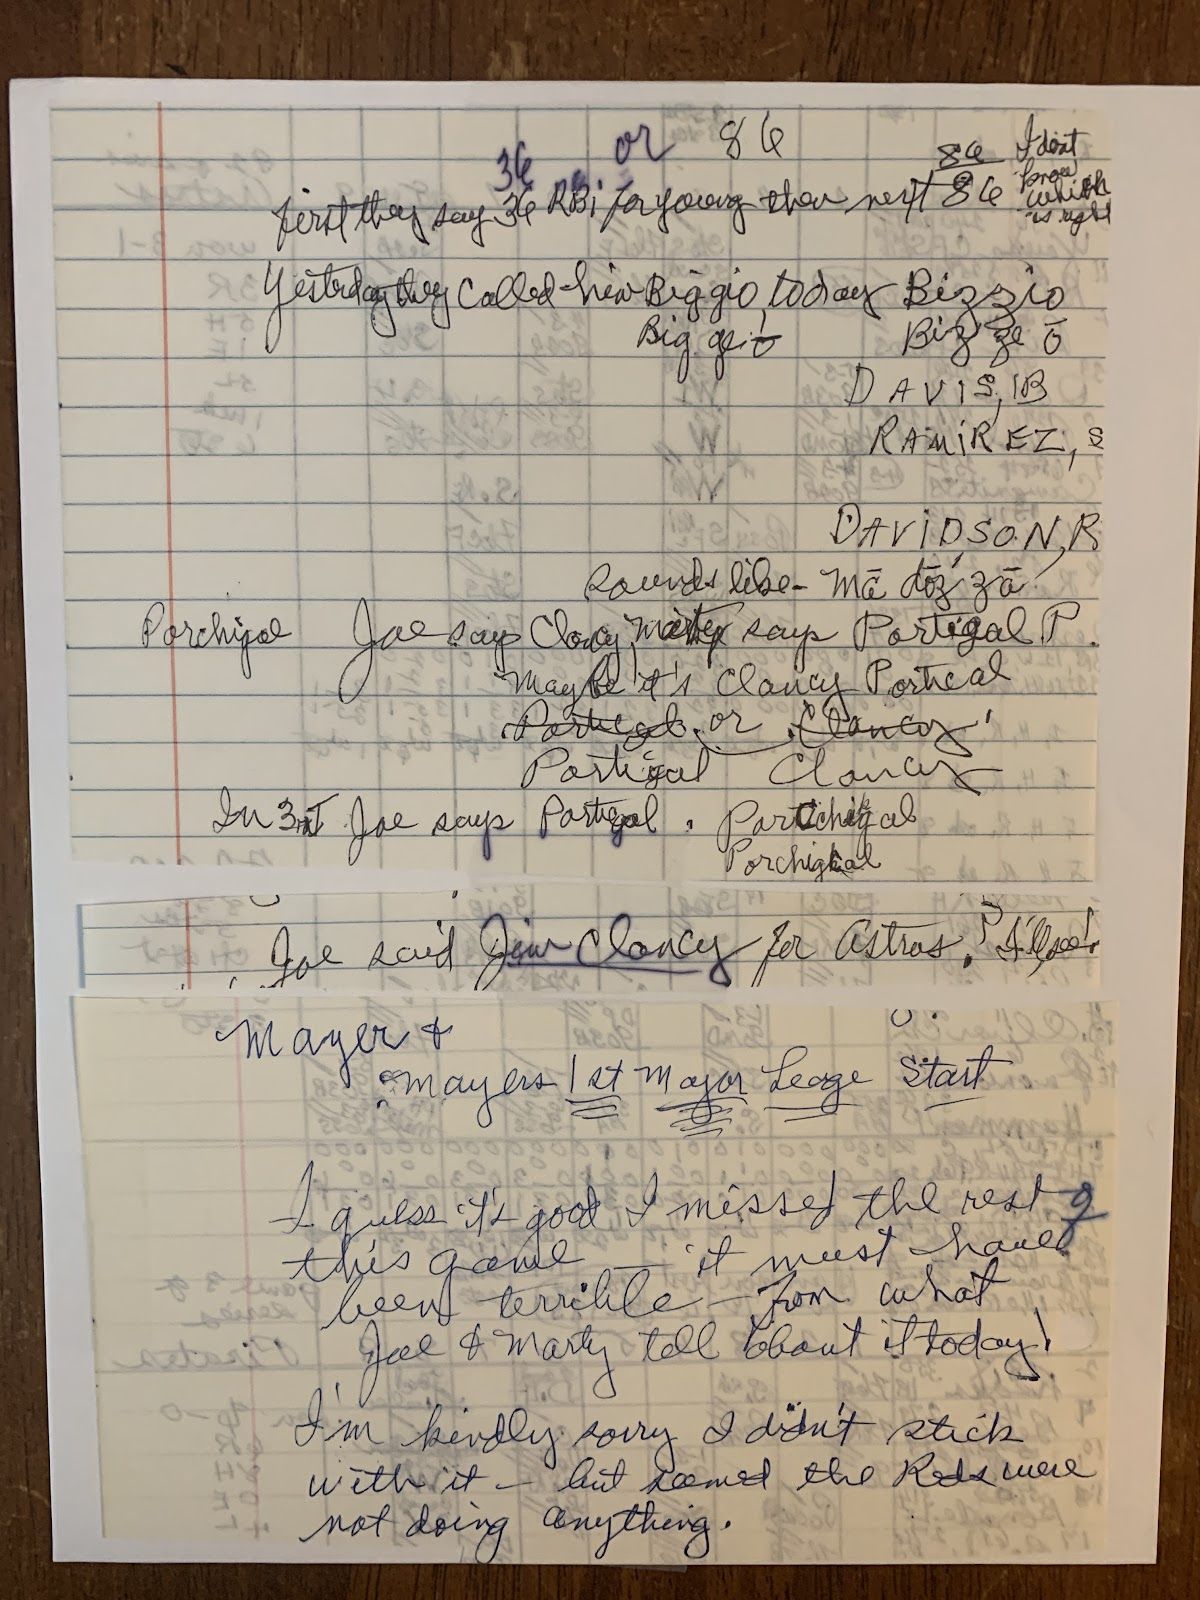 36 or 86
first they say 36 RBi for young then next 86
86 I don't
know
which
is right
Yesterday they called him Biggio, today Bizzio
Big ge ō Biz ze ō
DAVIS, 1B
RAMIREZ, S
DAVIDSON, R
sounds like - Mā dōz' zā
Porchigal Joe say Clancy, Marty says Portigal P.
Maybe it's Clancy Portical
Portigal or Clancy
Portigal Clancy
In 3rd Joe says Portigal. Portchigal
Porchigal
Joe said Jim Clancy for Astros. I'll see!
Mayer &
Mayers 1st Major Leage Start
I guess it's good I missed the rest of
this game — it must have
been terrible — from what
Joe & Marty tell about it today!
I'm kindly sorry I didn't stick
with it — but seemed the Reds were
not doing anything.